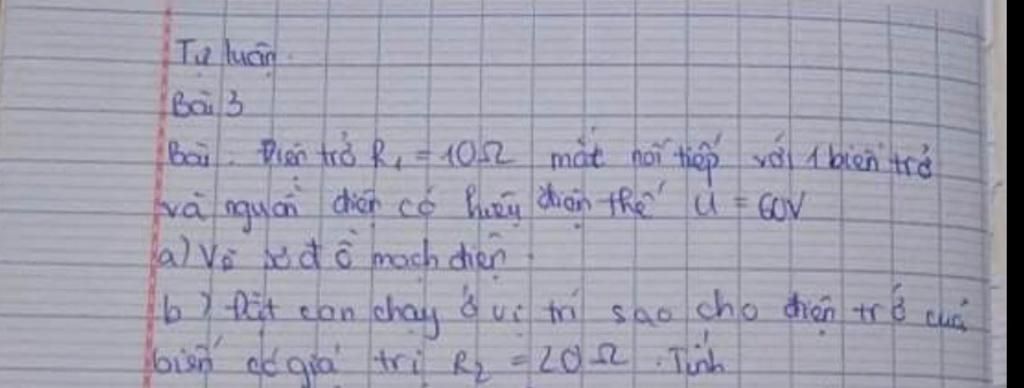 Tự luận.
Bài 3
Bài. Điện trở R₁ = 10Ω mắc nối tiếp với 1 biến trở
và nguồn điện có hiệu điện thế U = 60V
a) Vẽ sơ đồ mạch điện.
b) Đặt con chạy ở vị trí sao cho điện trở của
biến có giá trị R₂ = 20Ω. Tính